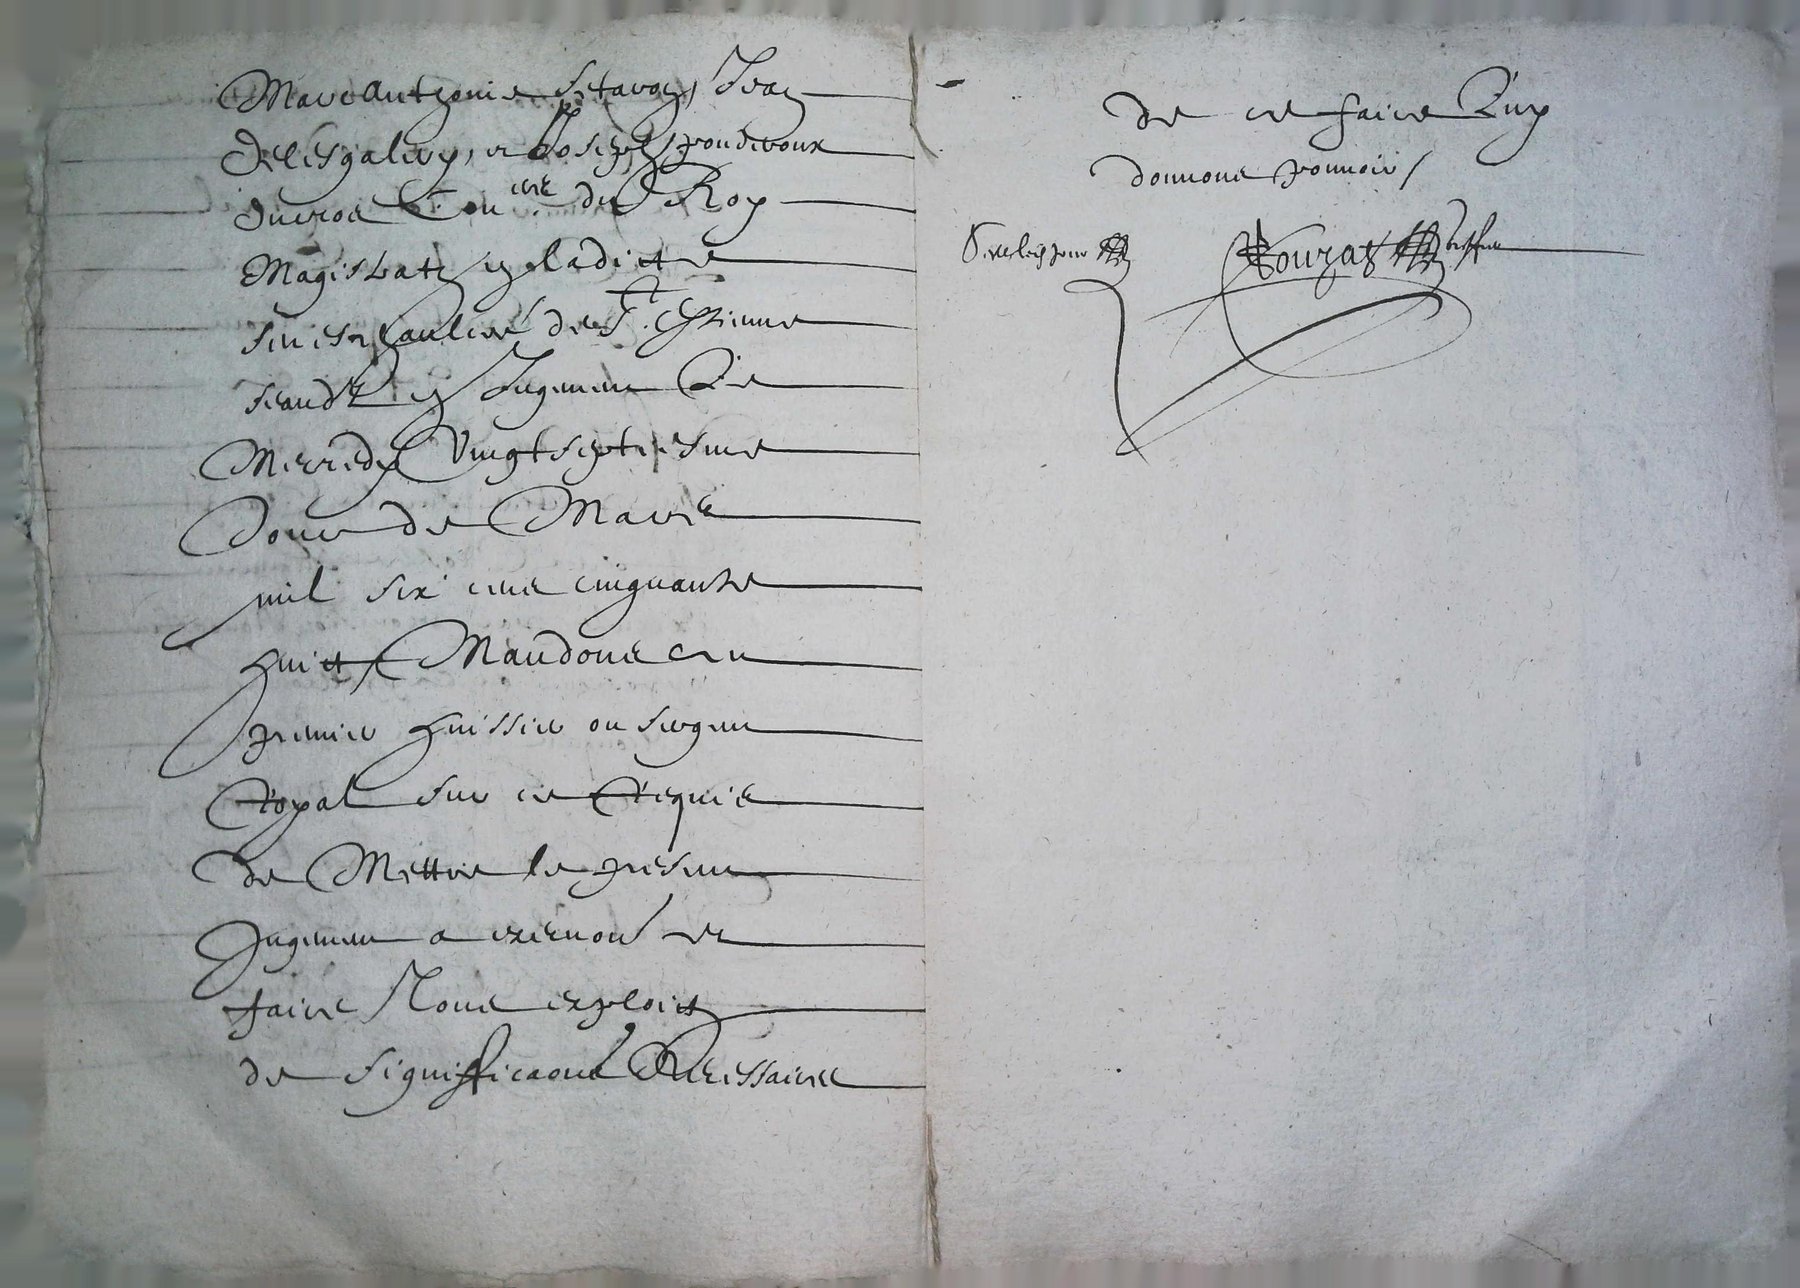 Marcanthoine Jean
et Joseph
ducros Con.er du Roy
Magistratz en ladicte
senesch.aulcée de St Estienne
seandz en Jugement Le
Mercredy Vingtseptiesme
Jour de Mars
mil six cens cinquante
huict Mandons au
premier huissier ou sergent
Royal sur ce Requis
de Mettre le present
Jugement a execuon et
faire Tous exploictz
de significaons Necessaires
de ce faire Luy
donnons pouvoir /